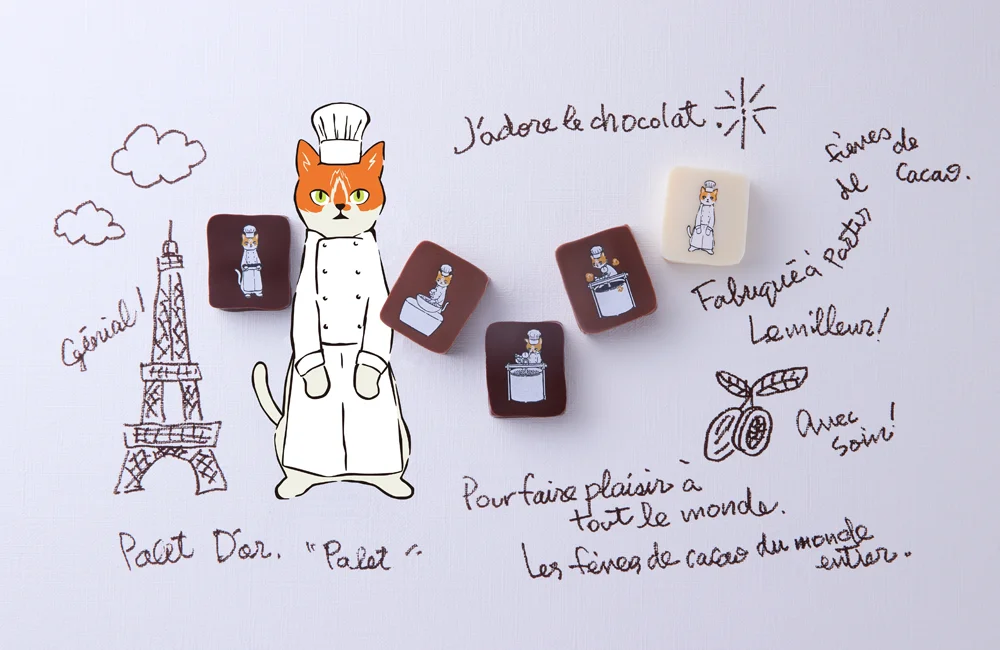 J'adore le chocolat.
Génial!
Fabriquëe à partir
de
fièves de
cacao.
Le milleur!
Avec
soin!
Pour faire plaisir à
tout le monde.
Les fèves de cacao du monde
entier.
Palet D'or. "Palet"